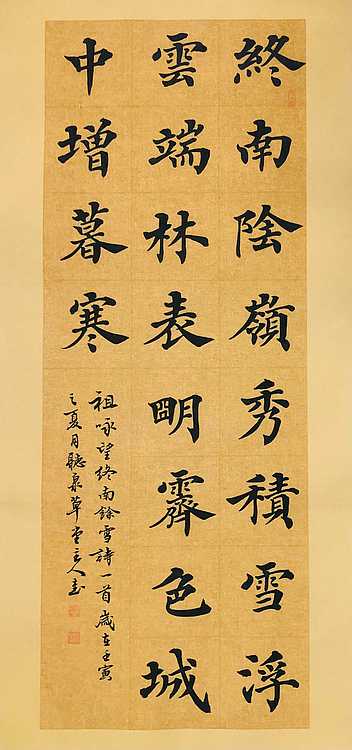 終南陰嶺秀積雪浮
雲端林表明霽色城
中增暮寒
祖咏望終南餘雪詩一首歲在壬寅
之夏月聽泉草堂主人書